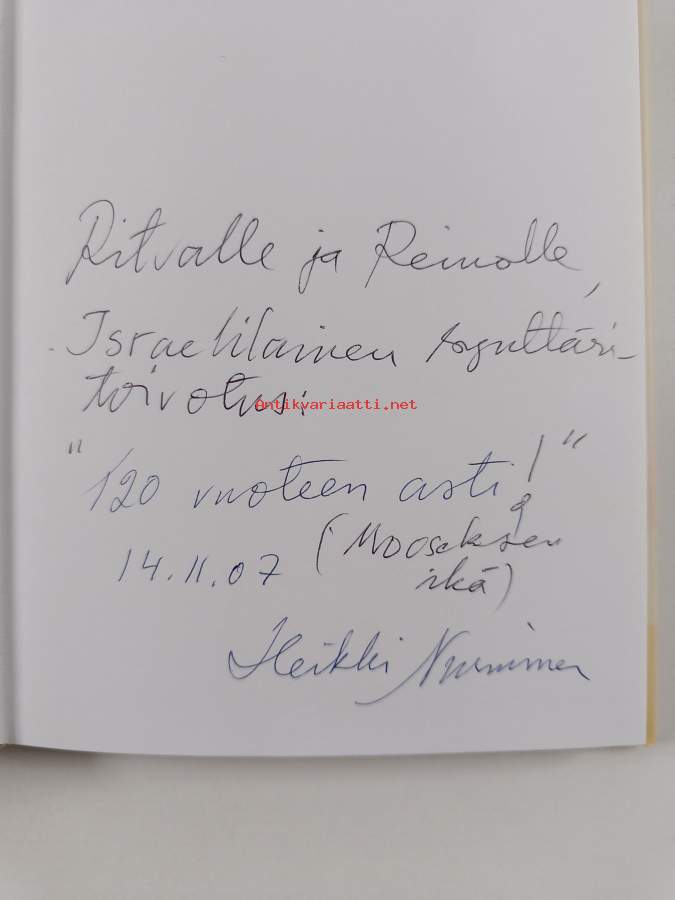 Ritvalle ja Reinolle,
Israelilainen synttäri-
toivotus:
Antikvariaatti.net
"120 vuoteen asti!"
14.11.07 (Mooseksen
ikä)
Heikki Nurminen